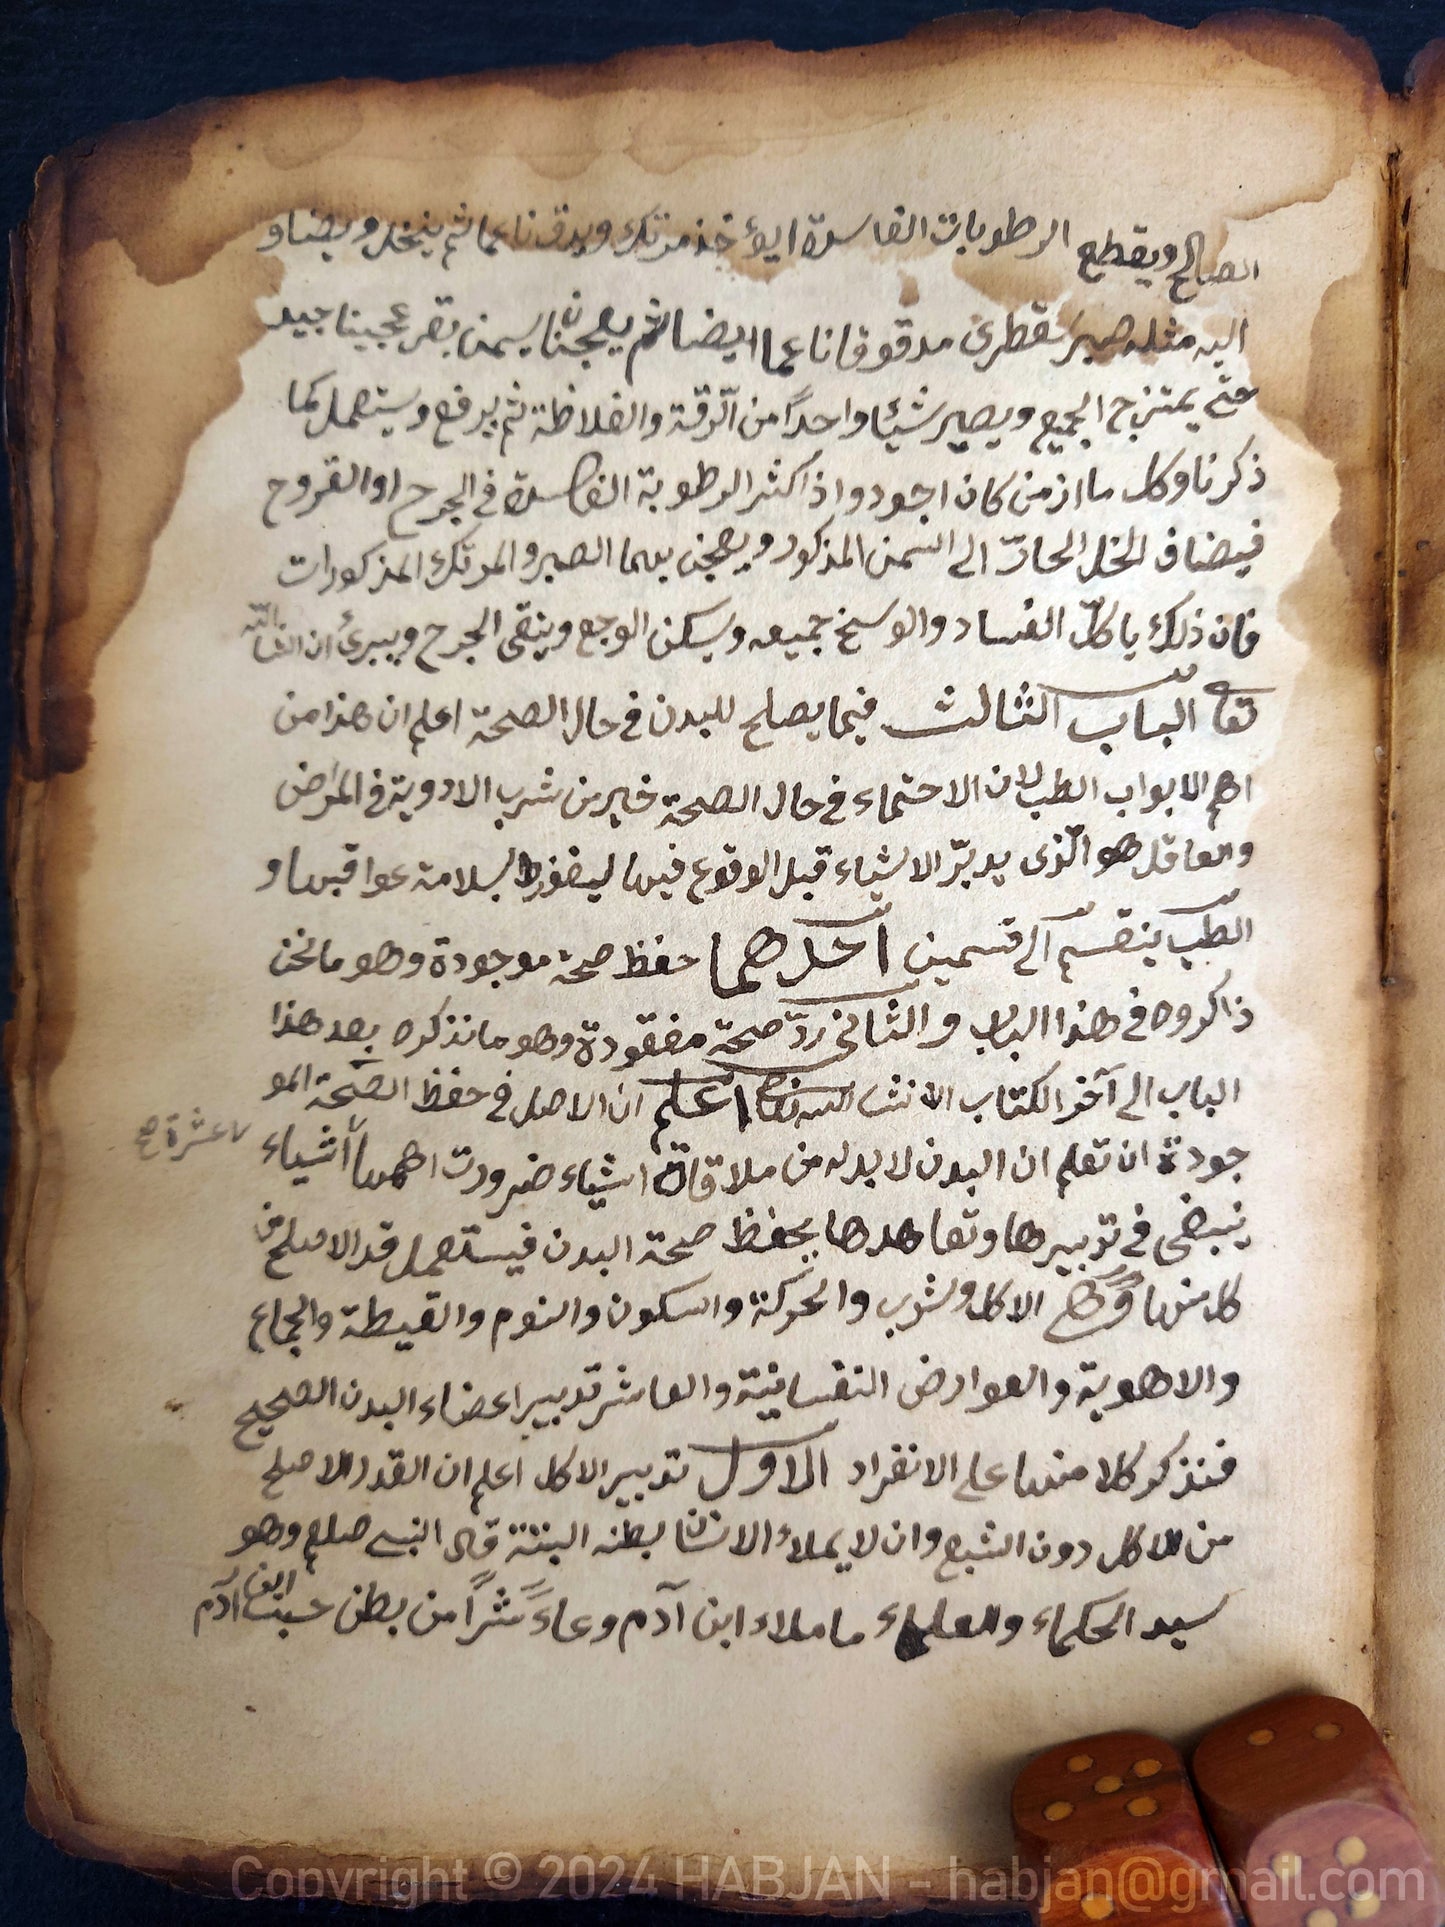 الصالح ويقطع الرطوبات الفاسدة ايلا خذ مرتك ويدق ناعما ثم ينخل ويضاو
اليه مثله صبر سقطرى مدقوقا ناعما ايضا ثم يعجنان بسمن بقر عجينا جيد
حتى يمتزج الجميع ويصير شيئا واحداً من الرّقة والغلاظة ثم يرفع ويستعمل كما
ذكرنا وكل ما ازمن كان اجود واذا كثر الرطوبة الفاسدة فى الجرح او القروح
فيضاف الخل الحارّ الى السمن المذكور ويعجن بهما الصبر والمرتك المذكورات
فان ذلك ياكلّ الفساد والوسخ جميعه ويسكن الوجع وينقى الجرح ويبرئ ان شا الله
تعا الباب الثالث فيما يصلح للبدن فى حال الصحة اعلم ان هذا من
اهم الابواب الطب لان الاحتماء فى حال الصحة خير من شرب الادوية فى المرض
والعاقل هو الّذى يدبّر الاشياء قبل الوقوع فيها ليفوز بسلامة عواقبها و
الطب ينقسم الى قسمين احدهما حفظ صحة موجودة وهو ما نحن
ذاكروه فى هذا الباب والثانى ردّ صحة مفقودة وهو ما نذكره بعد هذا
الباب الى آخر الكتاب ان شا الله تعا اعلم ان الاصل فى حفظ الصّحة المو
جودة ان تعلم ان البدن لا بد له من ملاقاة اشياء ضرورت اهمها أشياء
عشرة صح
ينبغى فى تدبيرها وتعاهدها بحفظ صحة البدن فيستعمل قد الاصلح من
كل منها وهى الاكل وشرب والحركة والسكون والنوم والقيظة والجماع
والاهوية والعوارض النفسانية والعاشر تدبير اعضاء البدن الصحيح
فنذكر كلا منها على الانفراد الاول تدبير الاكل اعلم ان القدر الاصلح
من الاكل دون الشبع وان لا يملاء الانسان بطنه البتة قال النبى صلعم وهو
سيد الحكماء والعلماء ما ملاء ابن آدم وعاءً شراً من بطن حسب ابن آدم
Copyright © 2024 HABJAN - habjan@gmail.com